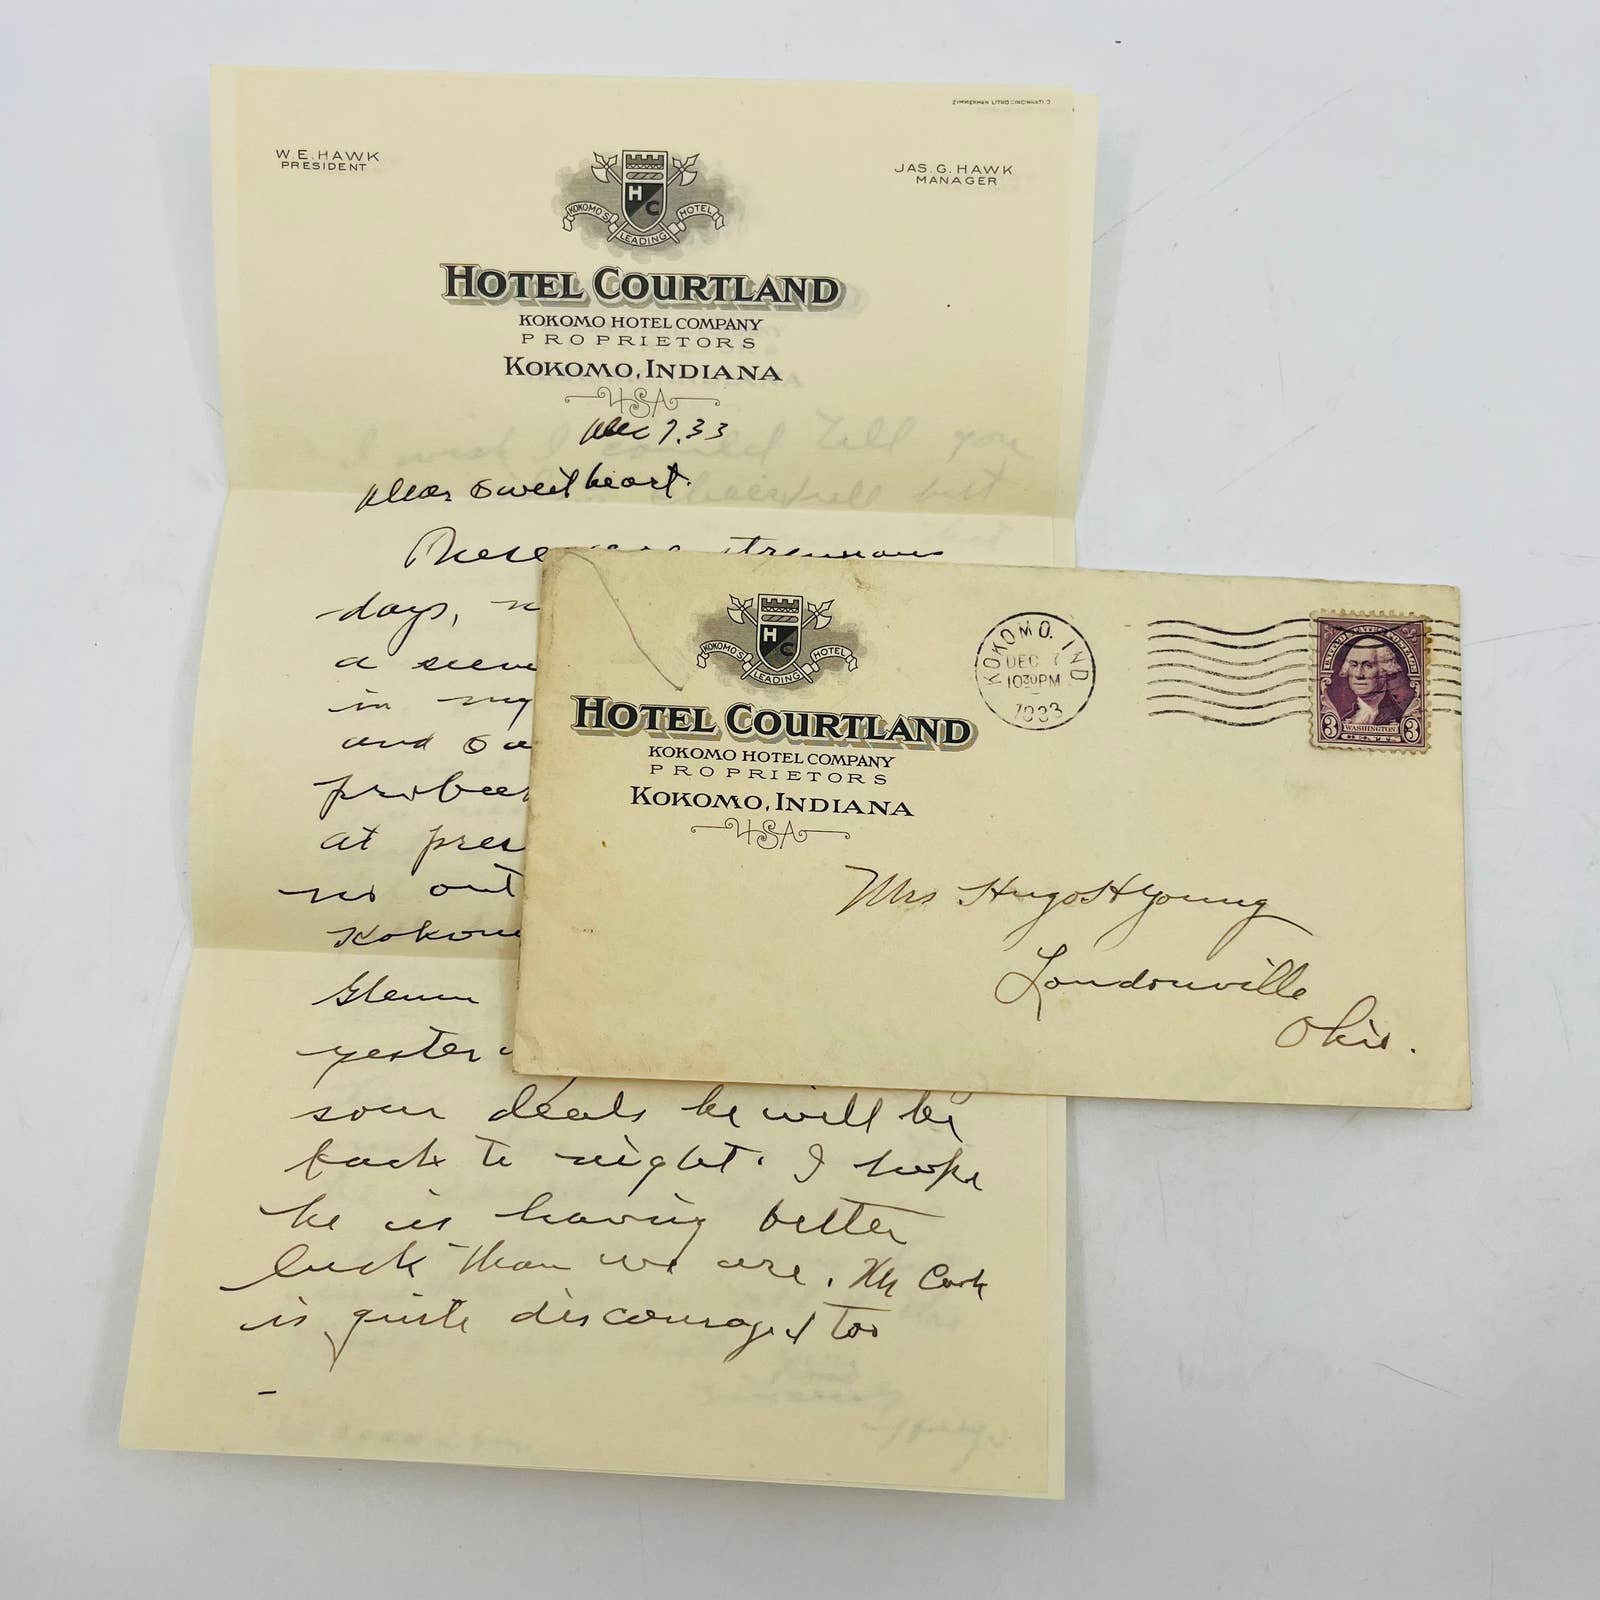 ZIMMERMAN LITHO CINCINNATI, O
W. E. HAWK
PRESIDENT
JAS. G. HAWK
MANAGER
H
C
KOKOMO'S LEADING HOTEL
HOTEL COURTLAND
KOKOMO HOTEL COMPANY
PROPRIETORS
KOKOMO, INDIANA
USA
Dec 7.33
Dear Sweetheart.
These are strenuous
days,
a
in my
and
at
no out
Kokomo
Glenn
yester
some deals he will be
back to night. I hope
he is having better
luck than we are. Mr Cook
is quite discouraged too
H
C
KOKOMO'S LEADING HOTEL
HOTEL COURTLAND
KOKOMO HOTEL COMPANY
PROPRIETORS
KOKOMO, INDIANA
USA
KOKOMO. IND
DEC 7
1030PM
1933
UNITED STATES POSTAGE
3 WASHINGTON 3
CENTS
Mrs Hugo H Young
Loudonville
Ohio.
I wish I could tell you
cheerfull but